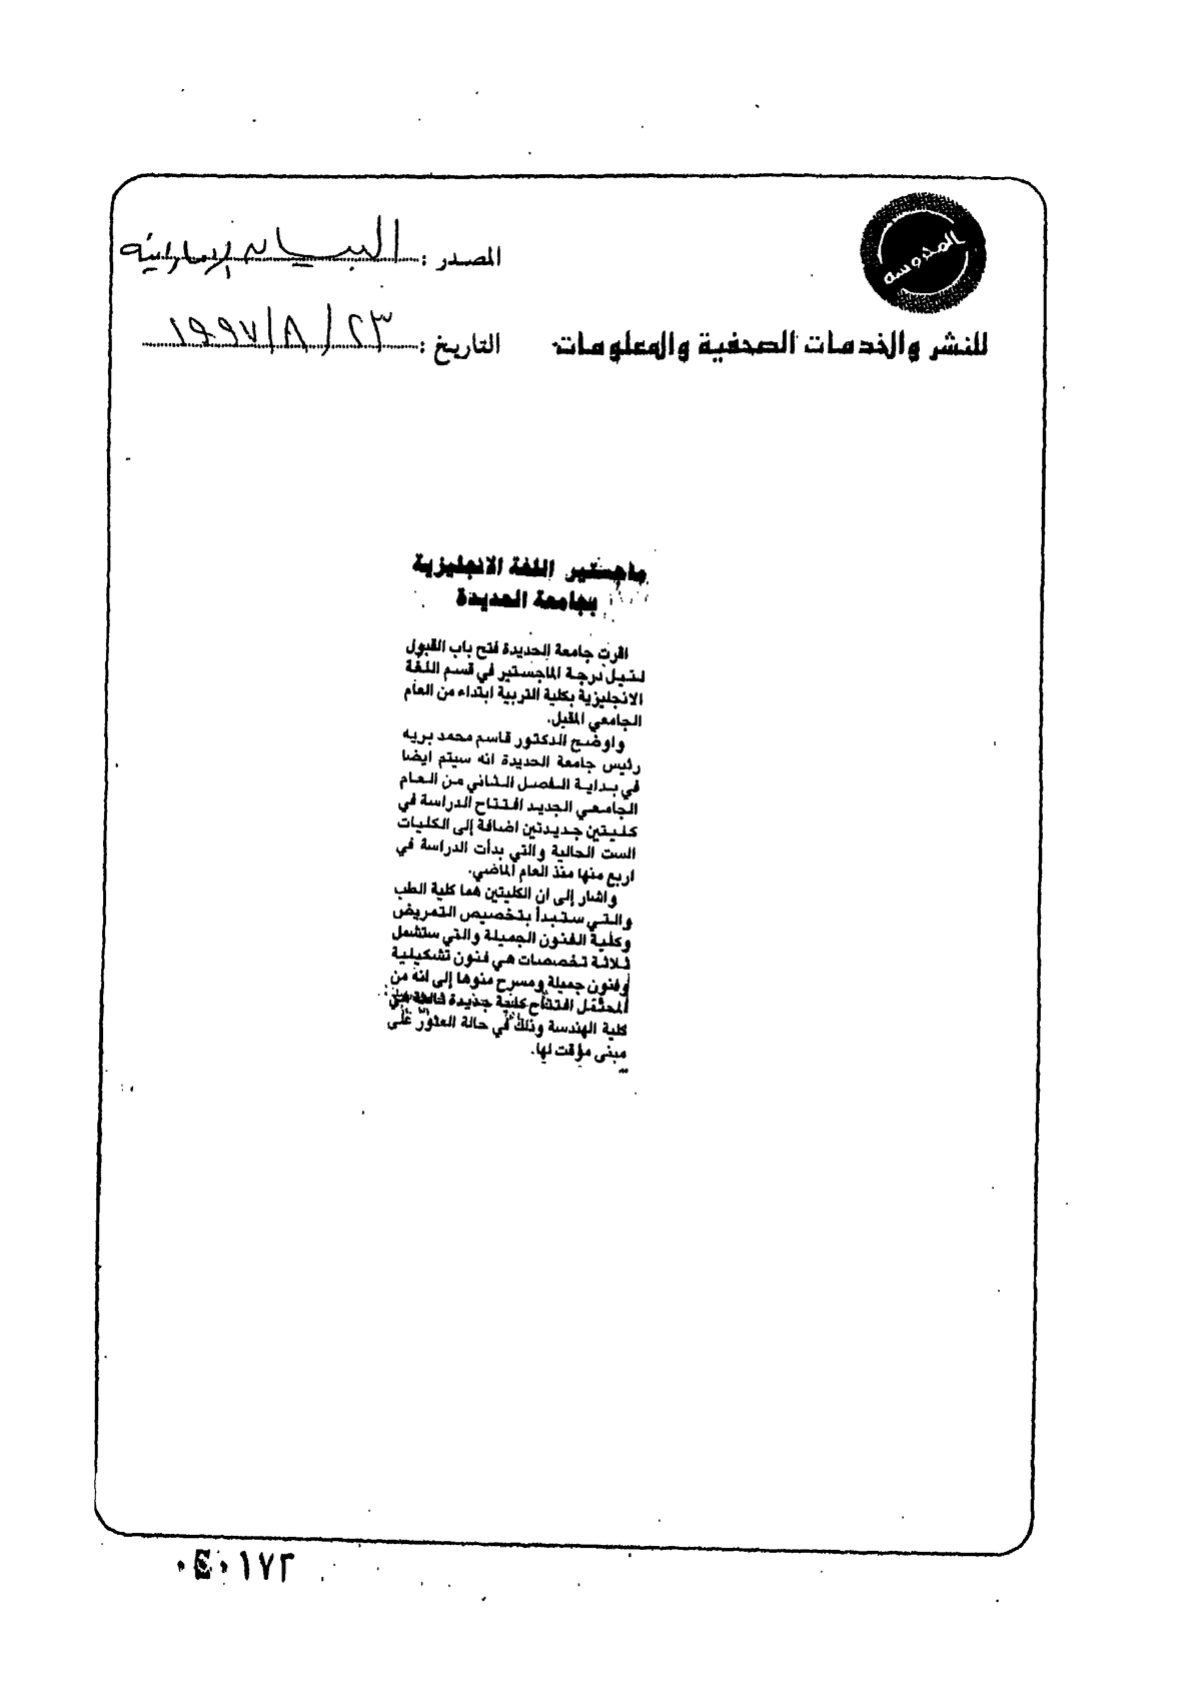 المدوسه
المصدر : البيان الإماراتية
للنشر والخدمات الصحفية والمعلومات
التاريخ : ٢٣ / ٨ / ١٩٩٧
ماجستير اللغة الانجليزية
بجامعة الحديدة
اقرت جامعة الحديدة فتح باب القبول
لنيل درجة الماجستير في قسم اللغة
الانجليزية بكلية التربية ابتداء من العام
الجامعي المقبل.
واوضح الدكتور قاسم محمد بريه
رئيس جامعة الحديدة انه سيتم ايضا
في بداية الفصل الثاني من العام
الجامعي الجديد افتتاح الدراسة في
كليتين جديدتين اضافة إلى الكليات
الست الحالية والتي بدأت الدراسة في
اربع منها منذ العام الماضي.
واشار إلى ان الكليتين هما كلية الطب
والتي ستبدأ بتخصيص التمريض
وكلية الفنون الجميلة والتي ستشمل
ثلاثة تخصصات هي فنون تشكيلية
وفنون جميلة ومسرح منوها إلى انه من
المحتمل افتتاح كلية جديدة ثالثة هي
كلية الهندسة وذلك في حالة العثور على
مبنى مؤقت لها.
٠٤٠١٧٢